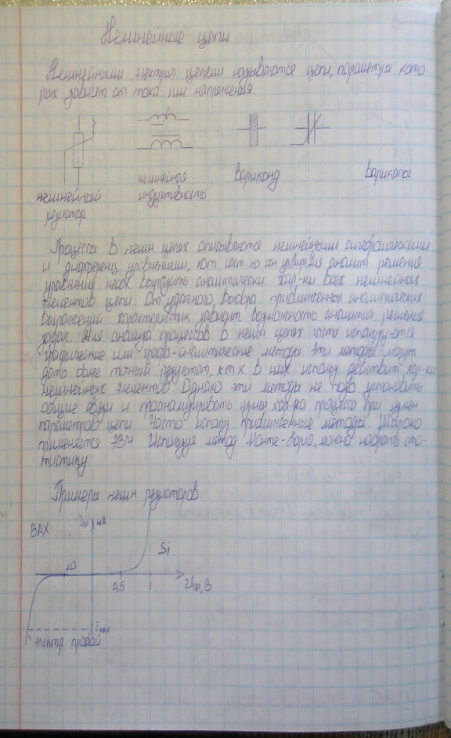 Нелинейные цепи
Нелинейными электрич. цепями называются цепи, параметры кото-
рых зависят от тока или напряжения
нелинейный
резистор
нелинейная
индуктивность
Вариконд
Варикапы
Процессы в нелин цепях описываются нелинейными алгебраическими
и дифференц. уравнениями,
уравнений надо выразить аналитически хар-ки всех нелинейных
элементов цепи. От удачного выбора приближенных аналитических
выражений характеристик зависит возможность аналитич. решения
задач. Для анализа процессов в нелин цепях часто используются
графические или графо-аналитические методы. Эти методы могут
дать более точный результат, к.т.к. в них использ. действит хар-ки
нелинейных элементов. Однако эти методы не позв. установить
общие связи и проанализировать измен хар-ра процесса при измен.
параметров цепи. Часто использ. приближенные методы. Широко
применяется ЭВМ. Используя метод Монте-Карло, можно набрать ста-
тистику
Примеры нелин резисторов
ВАХ
мА
Si
0,5
1
Uпр, В
Электр. пробой